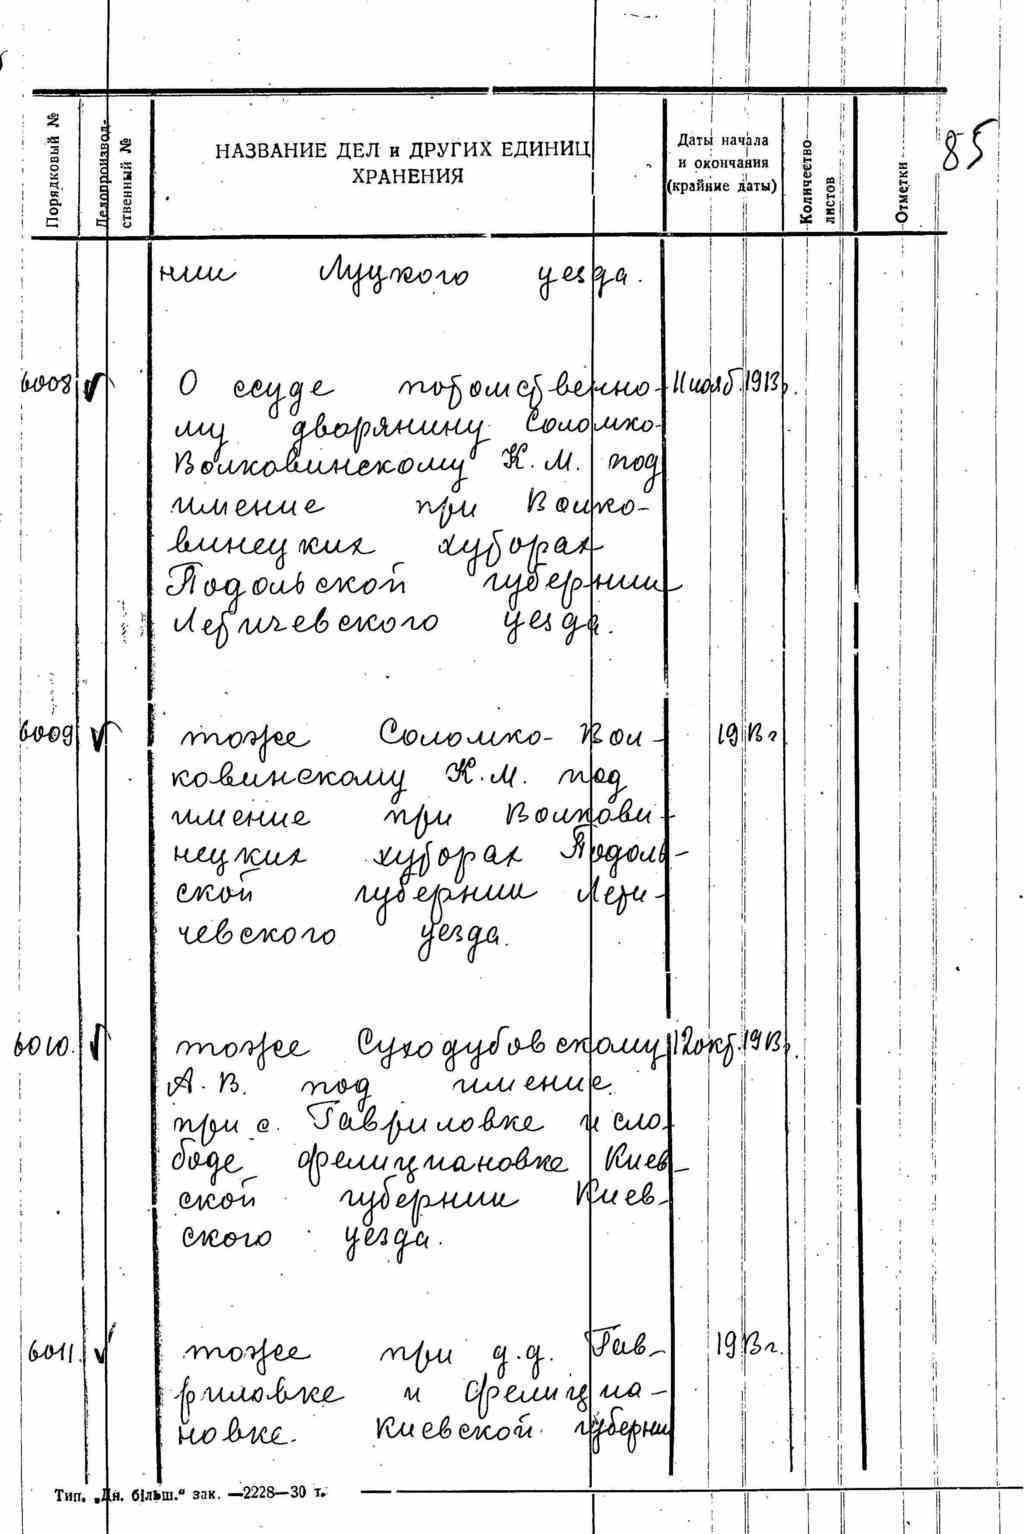 85
Порядковый №
Делопроизвод-
ственный №
НАЗВАНИЕ ДЕЛ и ДРУГИХ ЕДИНИЦ
ХРАНЕНИЯ
Даты начала
и окончания
(крайние даты)
Количество
листов
Отметки
нии Луцкого уезда.
6008 О ссуде потомственно- 11 нояб. 1913г.
му дворянину Соломко-
Волковинскому К. М. под
имение при Волко-
винецких хуторах
Подольской губернии
Летичевского уезда.
6009 тоже Соломко-Вол- 1913г
ковинскому К. М. под
имение при Волкови-
нецких хуторах Подоль-
ской губернии Лети-
чевского уезда.
6010. тоже Суходубовскому 12 окт. 1913г.
А. В. под имение
при с. Гавриловке и сло-
боде Фелициановке Киев-
ской губернии Киев-
ского уезда.
6011. тоже при д.д. Гав- 1913г.
риловке и Фелициа-
новке. Киевской губернии
Тип. „Дн. більш.“ зак. —2228—30 т.